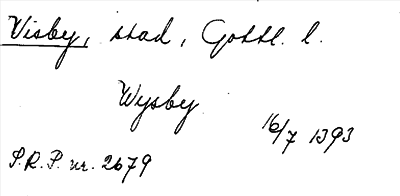 Visby, stad, Gottl. l.
Wysby
16/7 1393
S.R.P. nr. 2679